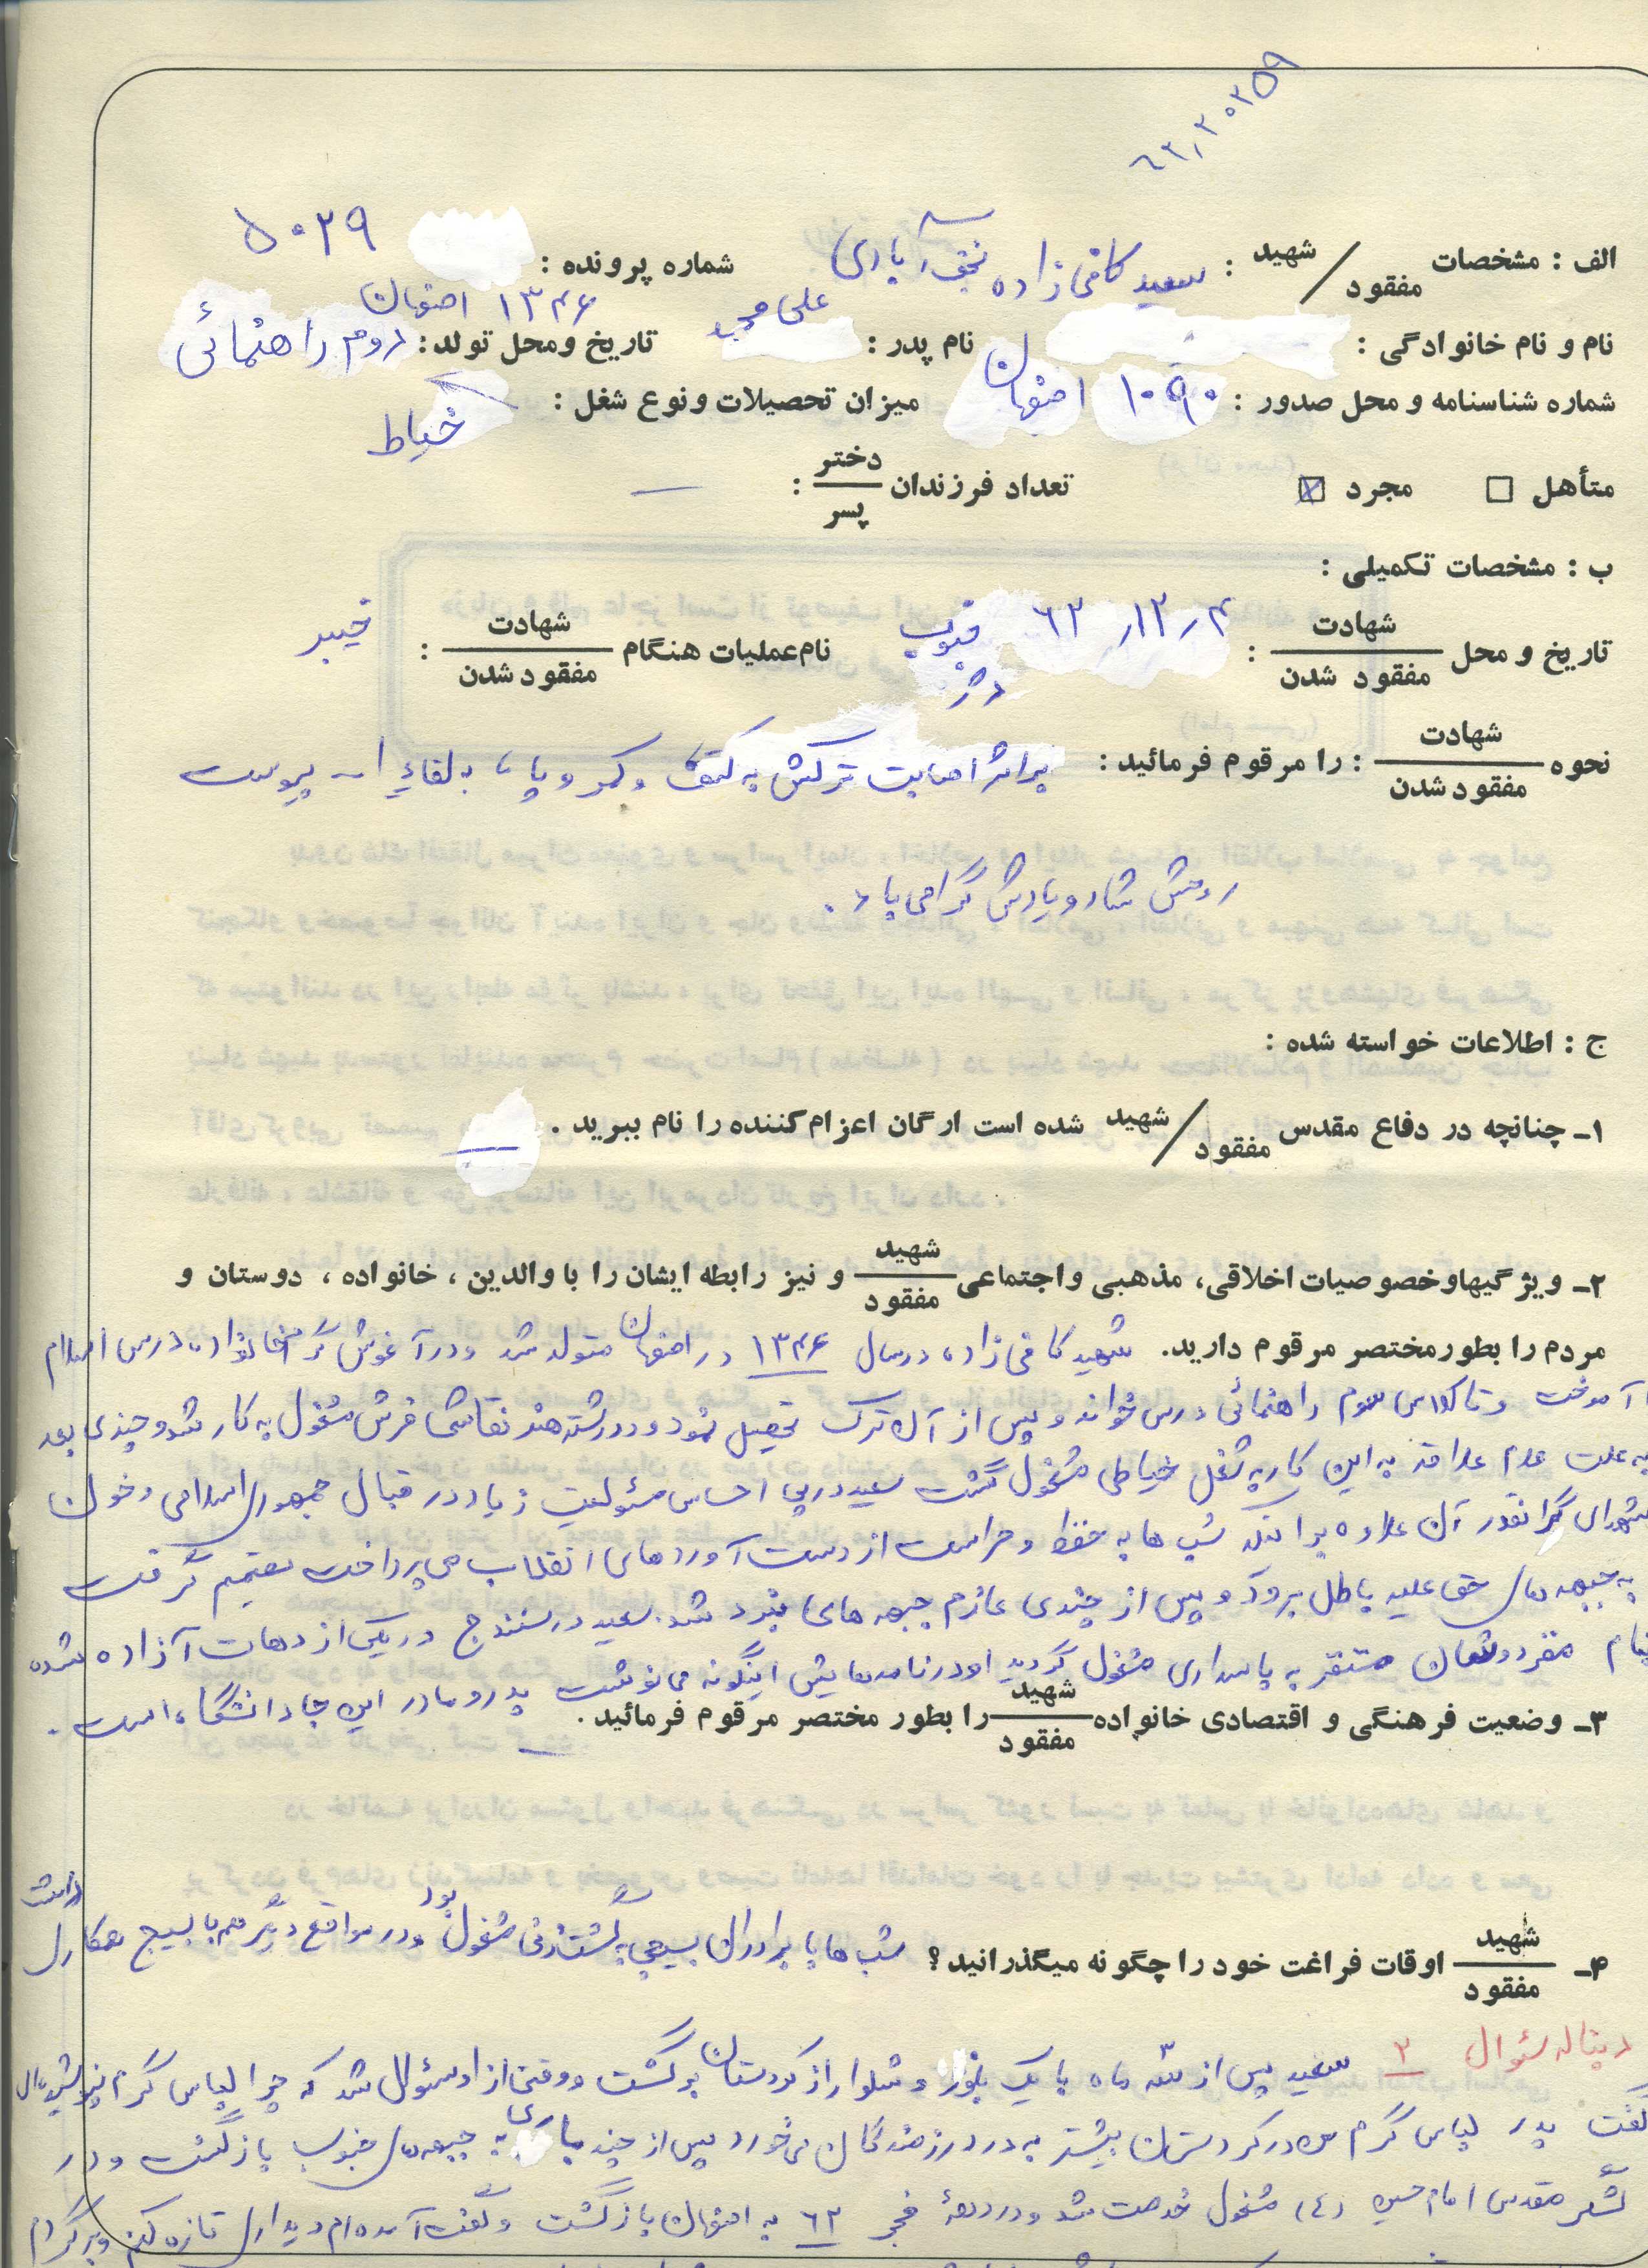 ۶۲٫۲۰۲۵۹
الف : مشخصات شهید / مفقود : سعید کافی زاده نجف آبادی شماره پرونده : ۵۰۲۹
نام و نام خانوادگی : نام پدر : علی محمد تاریخ ومحل تولد : ۱۳۴۶ اصفهان
شماره شناسنامه و محل صدور : ۱۰۹۰ اصفهان میزان تحصیلات ونوع شغل : دوم راهنمائی
خیاط
متأهل □ مجرد ☒ تعداد فرزندان دختر / پسر : —
ب : مشخصات تکمیلی :
تاریخ و محل شهادت / مفقود شدن : ۶۲٫۱۲٫۴ جنوب نام عملیات هنگام شهادت / مفقود شدن : خیبر
نحوه شهادت / مفقود شدن : را مرقوم فرمائید : براثر اصابت ترکش به کتف وکمر و پا، به لقاء ا... پیوست
روحش شاد و یادش گرامی باد .
ج : اطلاعات خواسته شده :
۱ـ چنانچه در دفاع مقدس شهید / مفقود شده است ارگان اعزام کننده را نام ببرید . —
۲ـ ویژگیها و خصوصیات اخلاقی، مذهبی واجتماعی شهید / مفقود و نیز رابطه ایشان را با والدین ، خانواده ، دوستان و
مردم را بطور مختصر مرقوم دارید. شهید کافی زاده درسال ۱۳۴۶ در اصفهان متولد شد ودر آغوش گرم خانواده درس اسلام
آموخت وتا کلاس سوم راهنمائی درس خواند و پس از آن ترک تحصیل نمود ودر رشته هنر نقاشی فرش مشغول به کار شد و چندی بعد
به علت عدم علاقه به این کار به شغل خیاطی مشغول گشت سعید در پی احساس مسئولیت زیاد در قبال جمهوری اسلامی و خون
شهدای گرانقدر آن علاوه بر اینکه شب ها به حفظ و حراست از دست آوردهای انقلاب می پرداخت تصمیم گرفت
به جبهه های حق علیه باطل برود و پس از چندی عازم جبهه های نبرد شد. سعید در سنندج در یکی از دهات آزاده شده
بنام مستقر به پاسداری مشغول گردید او در نامه هایش اینگونه می نوشت پدر و مادر این جا دانشگاه است .
۳ـ وضعیت فرهنگی و اقتصادی خانواده شهید / مفقود را بطور مختصر مرقوم فرمائید . —
۴ـ شهید / مفقود اوقات فراغت خود را چگونه میگذرانید ؟ شب ها با برادران بسیجی به گشت زنی مشغول بود ودر مواقع دیگر هم با بسیج همکاری داشت
دنباله سئوال ۲ سعید پس از سه ماه با یک بلوز و شلوار از کردستان برگشت و وقتی از او سئوال شد که چرا لباس گرم نپوشیده ای
گفت پدر لباس گرم من در کردستان بیشتر به درد رزمندگان می خورد پس از چند باری به جبهه های جنوب بازگشت ودر
لشگر مقدس امام حسین (ع) مشغول خدمت شد ودر دههٔ فجر ۶۲ به اصفهان بازگشت و گفت آمده ام دیداری تازه کنم و برگردم